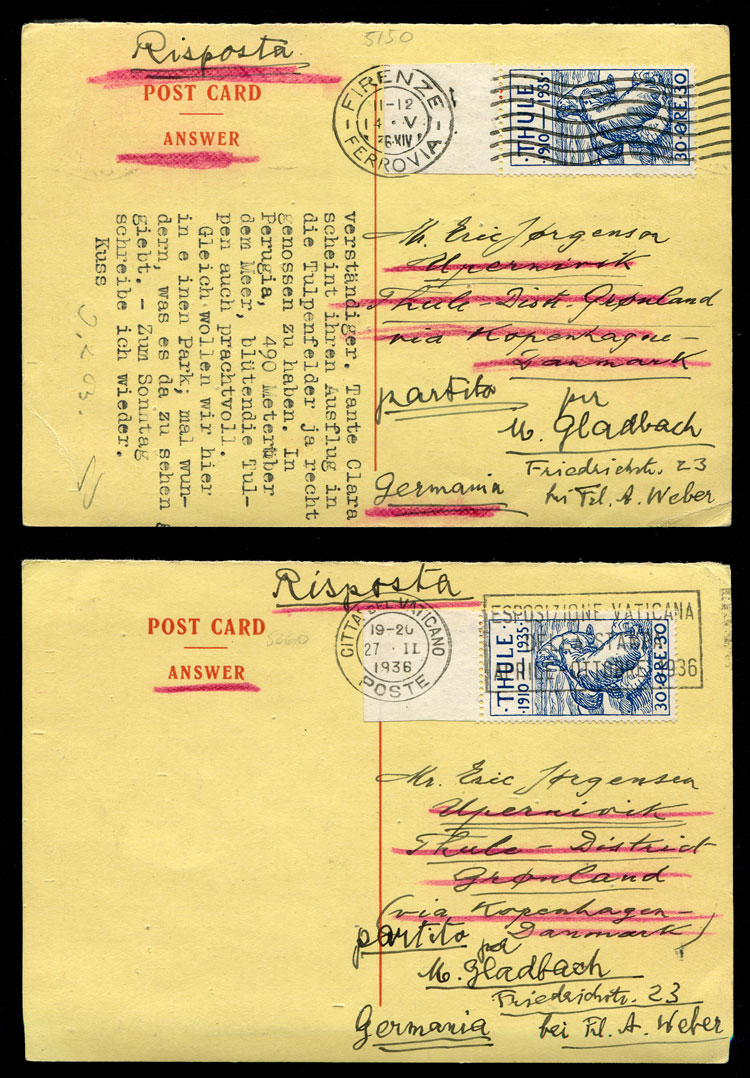 5150
Risposta
POST CARD
ANSWER
FIRENZE
11-12
14 · V
36·XIV
FERROVIA
· THULE ·
· 1910 - 1935 ·
30·ØRE·30
Mr. Eric Jørgensen
Upernivik
Thule-Distr. Grønland
via Kopenhague-
Danmark
partito per
M. Gladbach
Friedrichstr. 23
Germania bei Frl. A. Weber
verständiger. Tante Clara
scheint ihren Ausflug in
die Tulpenfelder ja recht
genossen zu haben. In
Perugia, 490 Meterüber
dem Meer, blütendie Tul-
pen auch prachtvoll.
Gleich wollen wir hier
in e inen Park; mal wun-
dern, was es da zu sehen g
giebt. - Zum Sonntag
schreibe ich wieder.
Kuss
Risposta
POST CARD
ANSWER
CITTA DEL VATICANO
19-20
27 · II
1936
POSTE
ESPOSIZIONE VATICANA
DELLA STAMPA
APRILE OTTOBRE 1936
· THULE ·
· 1910 1935 ·
30·ØRE·30
Mr. Eric Jørgensen
Upernivik
Thule - District
Grønland
(via Kopenhagen-
Danmark)
partito per
M. Gladbach
Friedrichstr. 23
Germania bei Frl. A. Weber